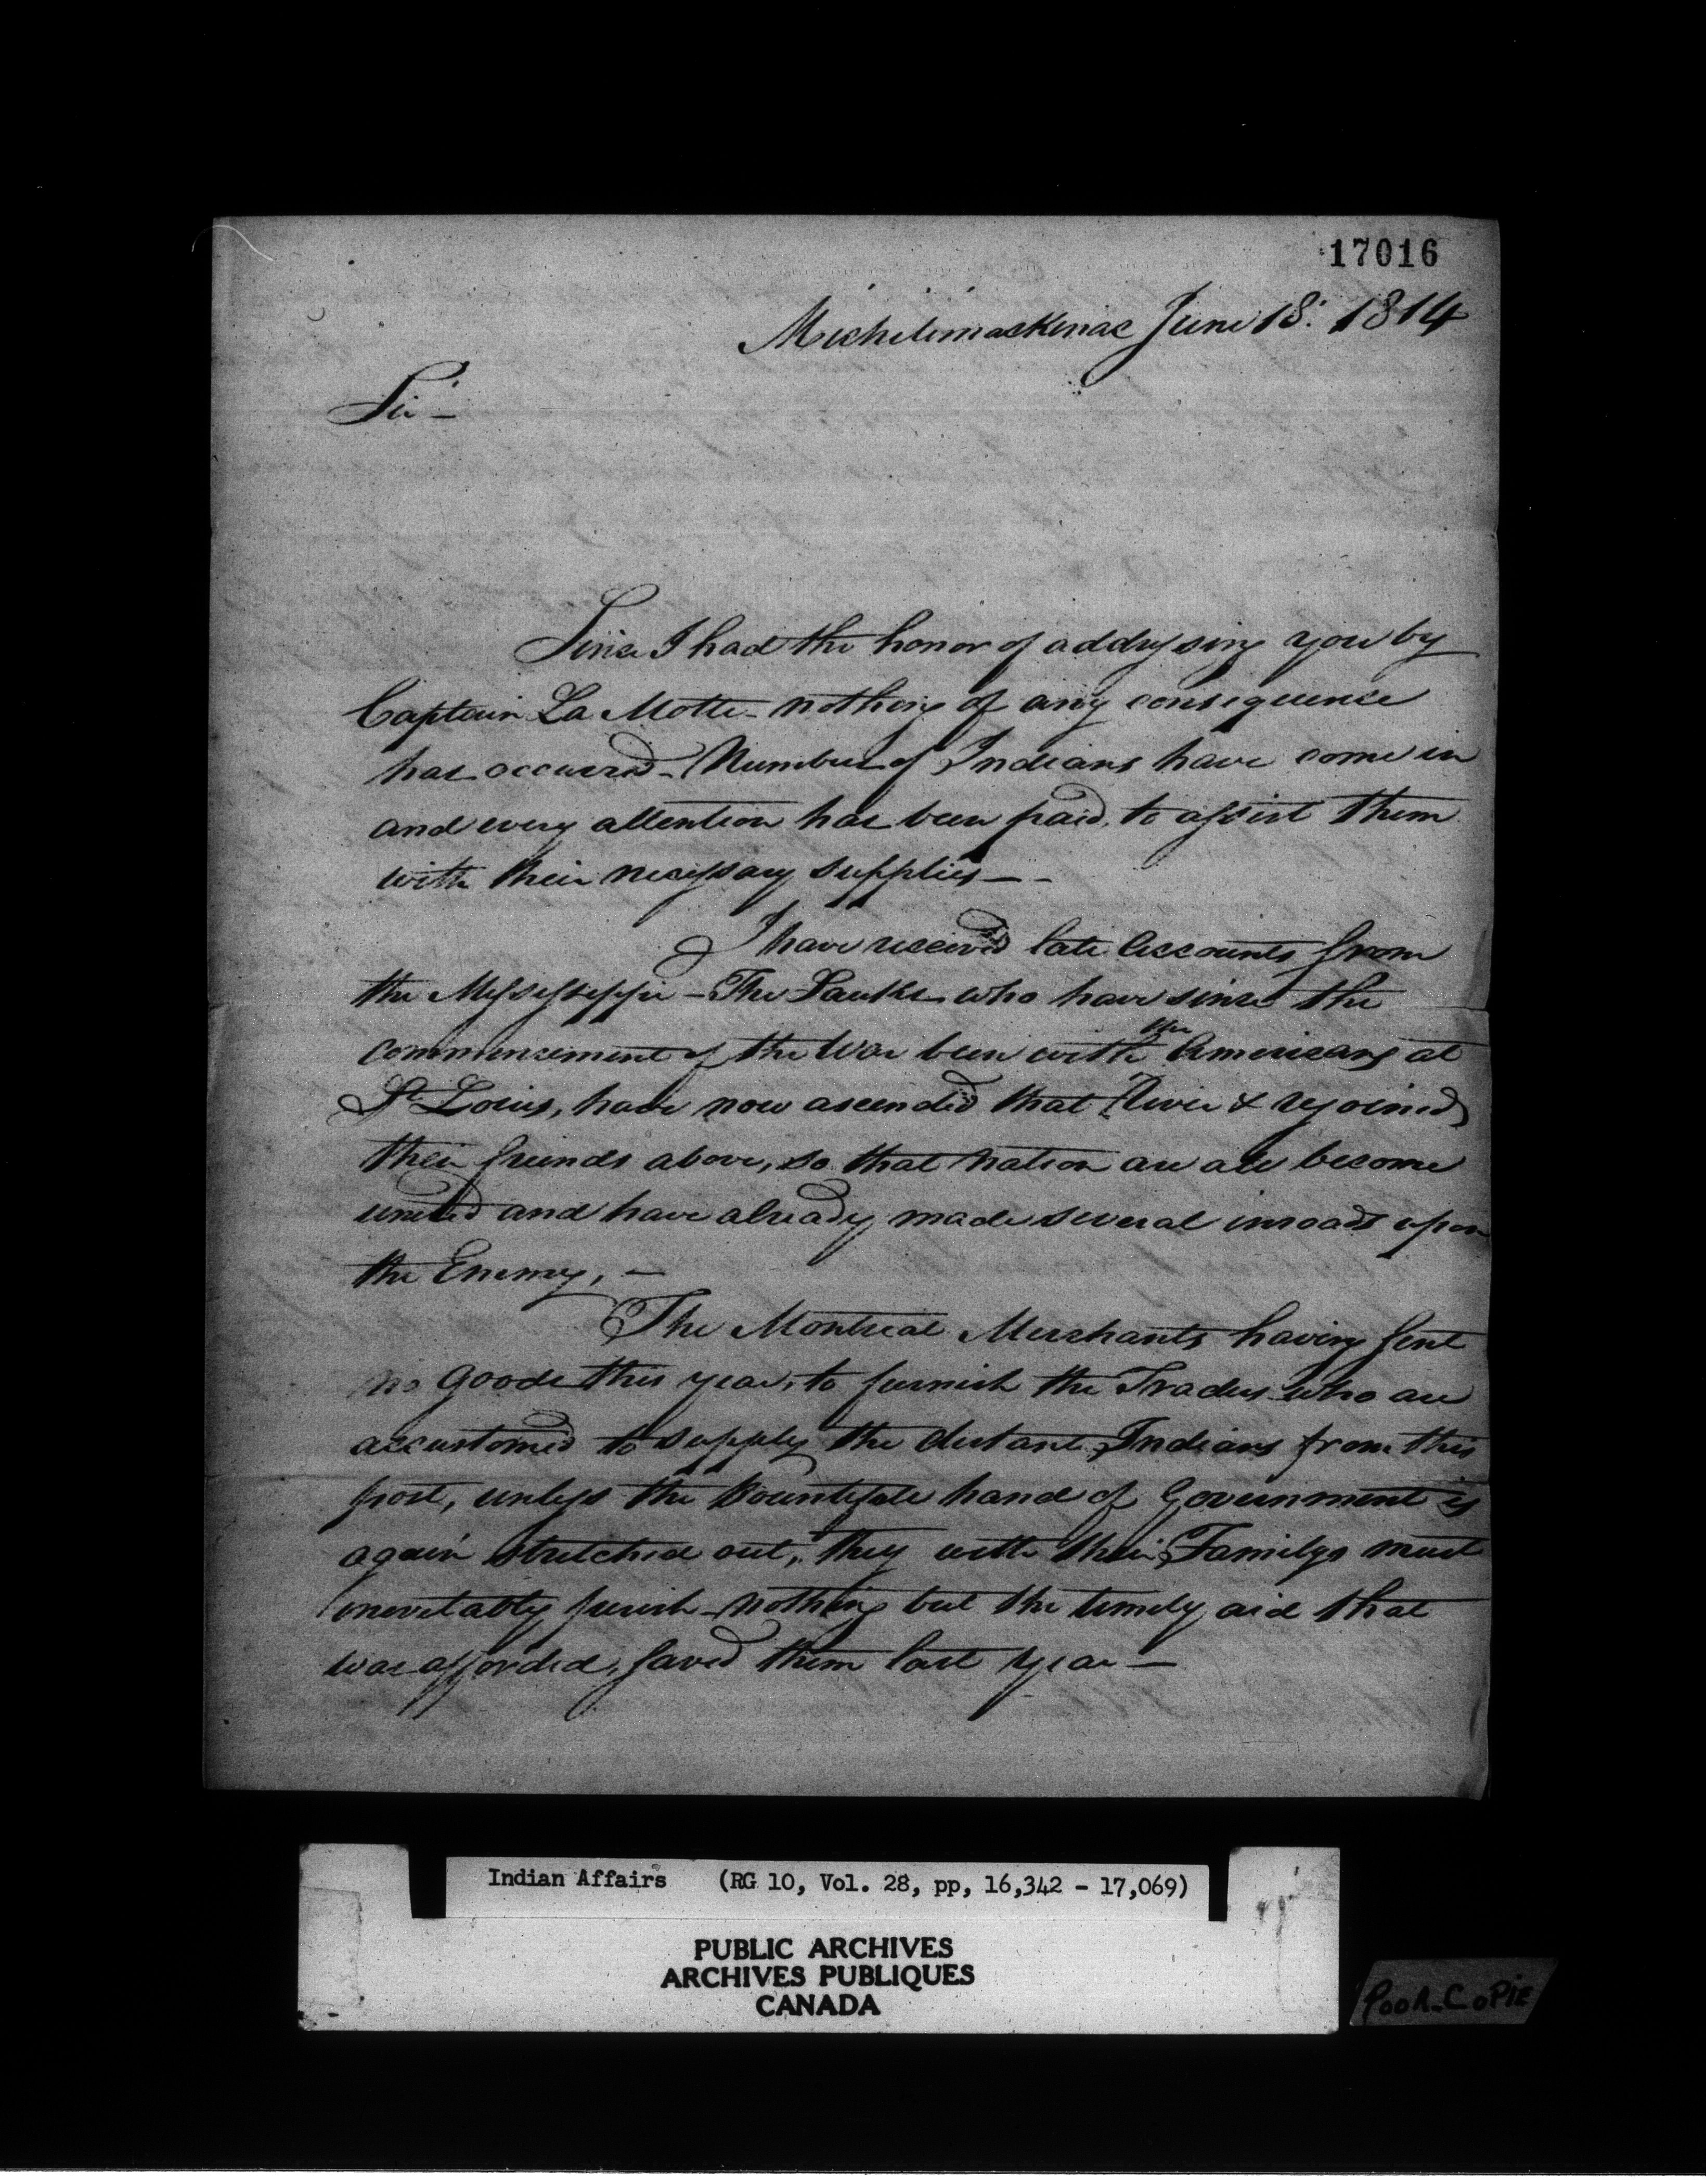 17016
Michilimackinac June 18: 1814
Sir —
Since I had the honor of addressing you by
Captain La Motte - nothing of any consequence
has occurred - Number of Indians have come in
and every attention has been paid, to assist them
with their necessary supplies — -
I have received late Accounts from
the Mississippi - The Sauks who have since the
commencement of the War been with the Americans at
St Louis, have now ascended that River & rejoined
their friends above, so that Nation are all become
united and have already made several inroads upon
the Enemy, —
The Montreal Merchants having sent
no goods this year, to furnish the Traders who are
accustomed to supply the distant Indians from this
post, unless the Bountifull hand of Government is
again stretched out, they with their Familys must
inevitably perish - nothing but the timely aid that
was afforded, saved them last year —
Indian Affairs (RG 10, Vol. 28, pp, 16,342 - 17,069)
PUBLIC ARCHIVES
ARCHIVES PUBLIQUES
CANADA
POOR COPIE